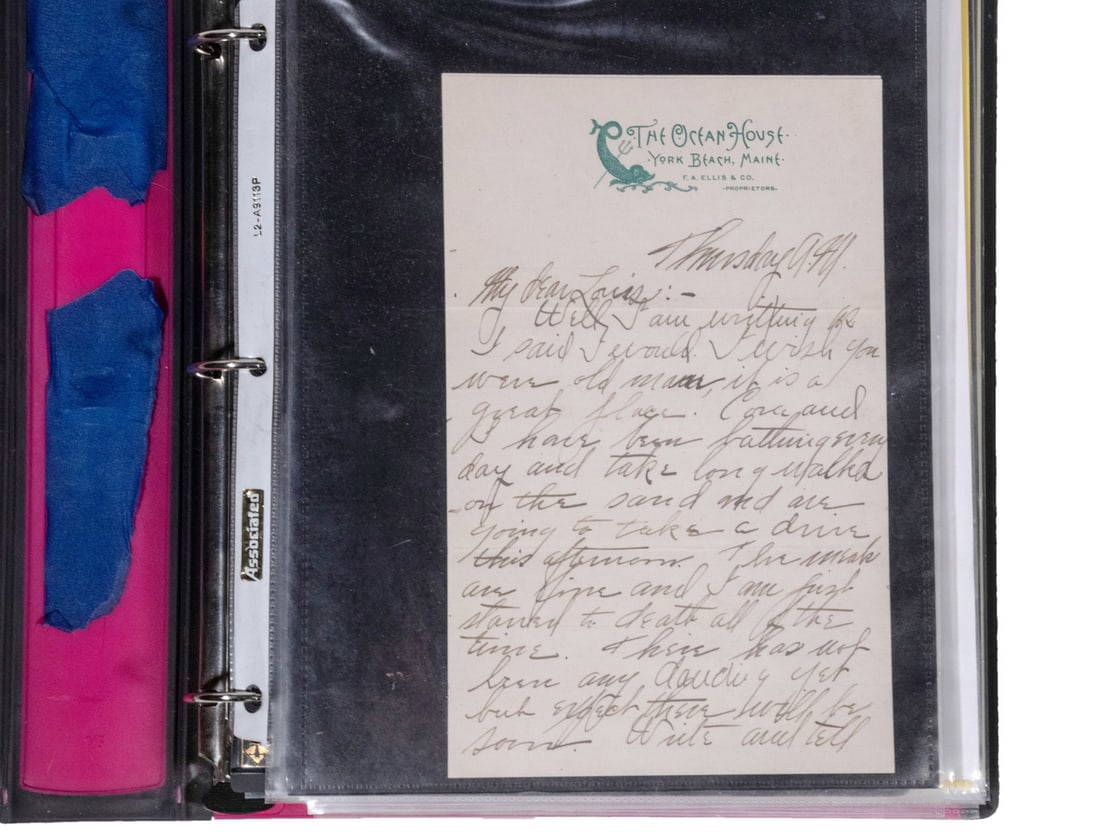 THE OCEAN HOUSE.
YORK BEACH, MAINE.
F. A. ELLIS & CO.
PROPRIETORS.
Thursday A.M.
My dear Louis:-
Well, I am writing as
I said I would. I wish you
were, old man, it is a
great place. Cora and
I have been bathing every
day and take long walks
on the sand and are
going to take a drive
this afternoon. The meals
are fine and I am just
starved to death all of the
time. There has not
been any dancing yet
but expect there will be
soon. Write and tell
L2-A9113P
Associated